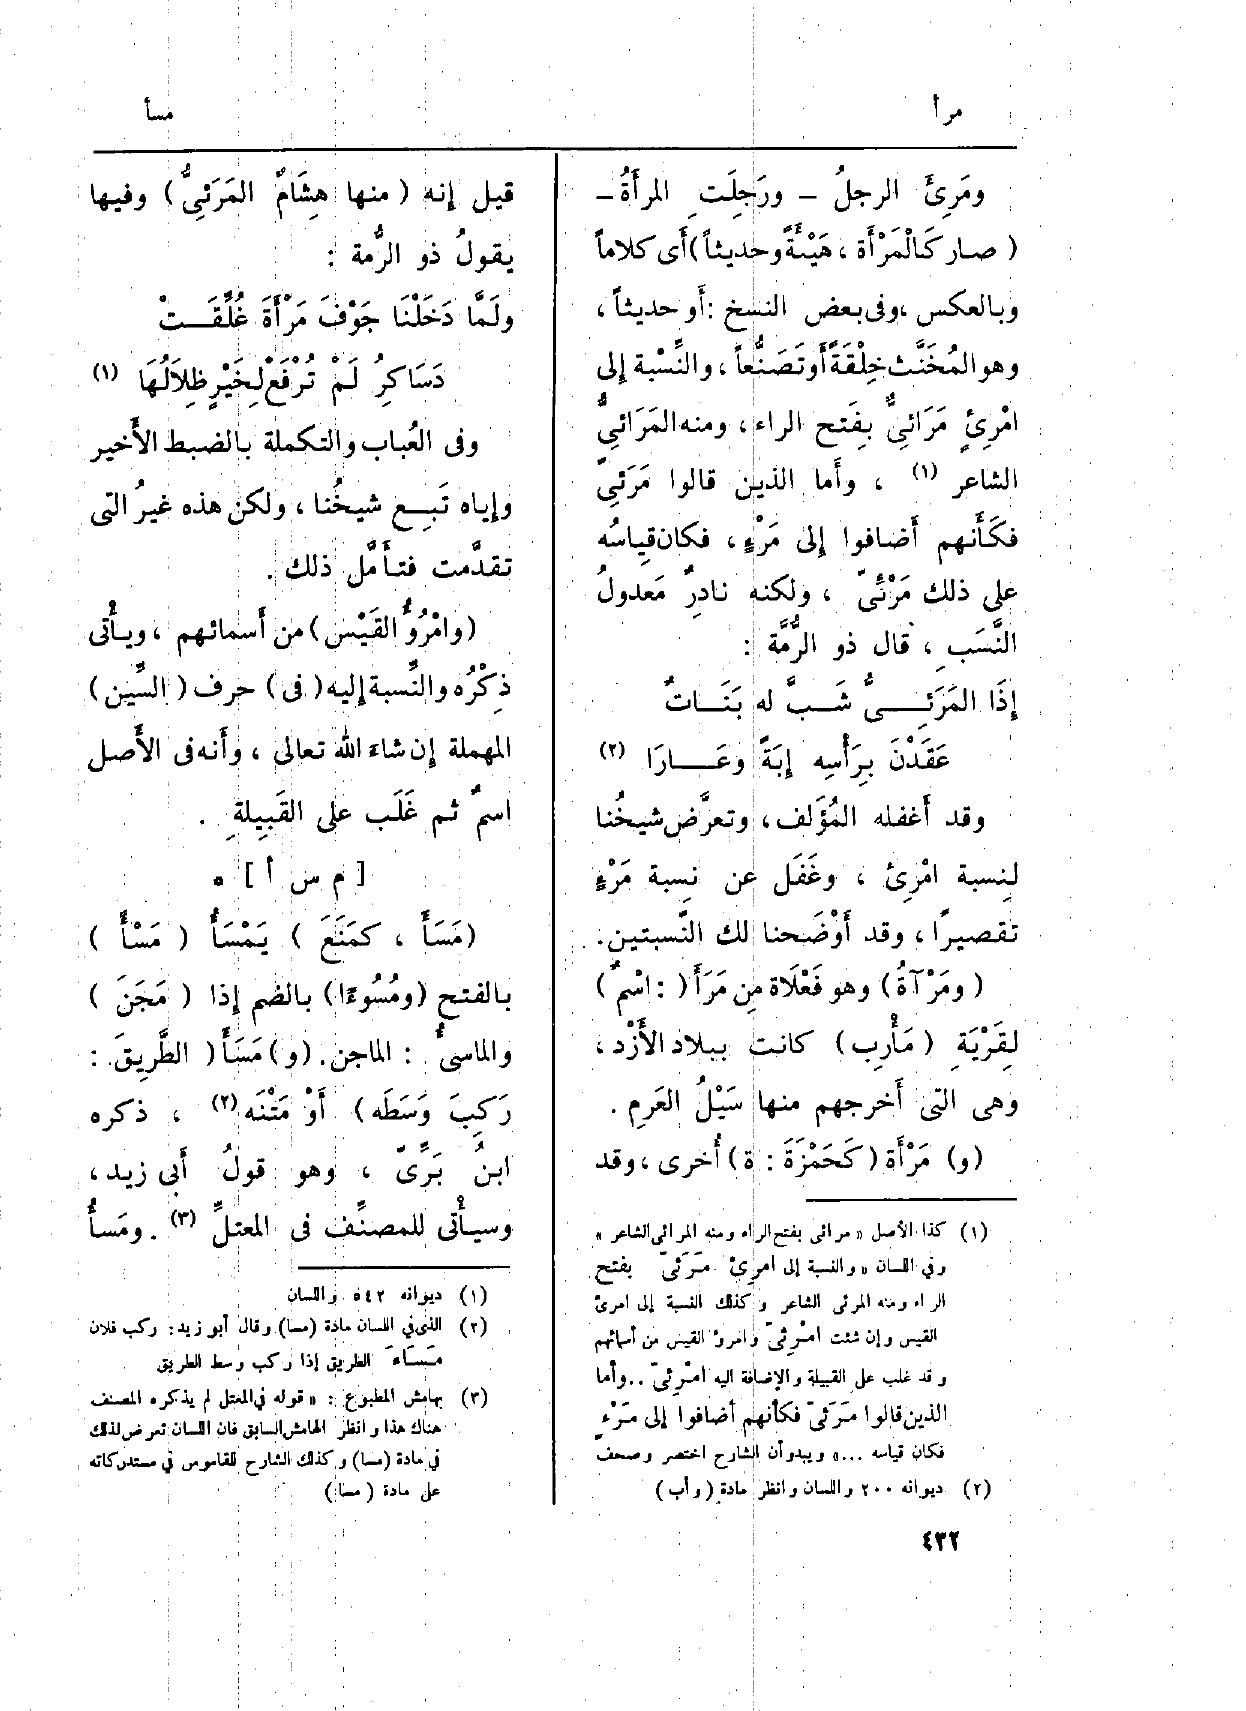 مرأ
مسأ
ومَرِئَ الرجلُ – ورَجِلَتِ المرأَةُ –
( صار كَالْمَرْأَة ، هَيْئَةً وحديثاً ) أَى كلاماً
وبالعكس ، وفى بعض النسخ : أَو حديثاً ،
وهو المُخَنَّث خِلْقَةً أَو تَصَنُّعاً ، والنِّسْبة إلى
امْرِئٍ مَرَائيٌّ بِفَتح الراء ، ومنه المَرَائيُّ
الشاعر (١) ، وأَما الذين قالوا مَرَئِىٌّ
فكَأَنهم أَضافوا إلى مَرْءٍ ، فكان قياسُه
على ذلك مَرْئِىٌّ ، ولكنه نادرٌ مَعدولُ
النَّسَبِ ، قال ذو الرُّمَّة :
إِذَا المَرَئِـــىُّ شَـــبَّ له بَنَـــاتٌ
عَقَدْنَ بِرَأْسِه إِبَةً وعَـــارَا (٢)
وقد أَغفله المُؤَلف ، وتعرَّض شيخُنا
لِنِسبة امْرِئ ، وغَفَل عن نِسبة مَرْءٍ
تقصيرًا ، وقد أَوْضَحنا لك النِّسبتين .
( ومَرْآةُ ) وهو فَعْلَاة مِن مَرَأَ ( : اسْمٌ )
لِقَرْيَةِ ( مَأْرِب ) كانت ببلاد الأَزْد ،
وهى التى أَخرجهم منها سَيْلُ العَرِمِ .
( و ) مَرْأَة ( كَحَمْزَةَ : ة ) أُخرى ، وقد
(١) كذا الأصل « مرائى بفتح الراء ومنه المرائى الشاعر »
وفي اللسان « والنسبة إلى امرِئ مَرَئىّ بفتح
الراء ومنه المرئى الشاعر وكذلك النسبة إلى امرئ
القيس وإن شئت امْرِئىّ وامرؤ القيس من أسمائهم
وقد غلب على القبيلة والإضافة اليه امْرِئىّ .. وأما
الذين قالوا مَرَئىّ فكأنهم أضافوا إلى مَرْءٍ
فكان قياسه ... » ويبدو أن الشارح اختصر وصحف
(٢) ديوانه ٢٠٠ واللسان وانظر مادة ( وأب )
قيل إنه ( منها هِشَامٌ المَرَئِىُّ ) وفيها
يقولُ ذو الرُّمة :
ولَمَّا دَخَلْنَا جَوْفَ مَرْأَةَ غُلِّقَـــتْ
دَسَاكِرُ لَمْ تُرْفَع لِخَيْرٍ ظِلَالُهَا (١)
وفى العُباب والتكملة بالضبط الأَخير
وإياه تَبِـــع شيخُنا ، ولكن هذه غيرُ التى
تقدَّمت فتأَمَّل ذلك .
( وامْرُؤُ القَيْس ) من أَسمائهم ، ويأْتى
ذِكْرُه والنِّسبة إليه ( فى ) حرف ( السِّين )
المهملة إن شاء الله تعالى ، وأَنه فى الأَصل
اسمٌ ثم غَلَب على القَبِيلةِ .
[ م س أ ] •
( مَسَأَ ، كمَنَعَ ) يَمْسَأُ ( مَسْأً )
بالفتح ( ومُسُوءًا ) بالضم إذا ( مَجَنَ )
والماسىُّ : الماجن . ( و ) مَسَأَ ( الطَّرِيقَ :
رَكِبَ وَسَطَه ) أَوْ مَتْنَه (٢) ، ذكره
ابنُ بَرِّىّ ، وهو قولُ أَبى زيد ،
وسيأْتى للمصنِّف فى المعتلِّ (٣) . ومَسأَ
(١) ديوانه ٥٤٢ واللسان
(٢) الذى في اللسان مادة (مسا) وقال أبو زيد : ركب فلان
مَسَاءَ الطريق إذا ركب وسط الطريق
(٣) بهامش المطبوع : « قوله في المعتل لم يذكره المصنف
هناك هذا وانظر الهامش السابق فان اللسان تعرض لذلك
في مادة (مسا) وكذلك الشارح للقاموس في مستدركاته
على مادة ( مسا )
٤٣٢